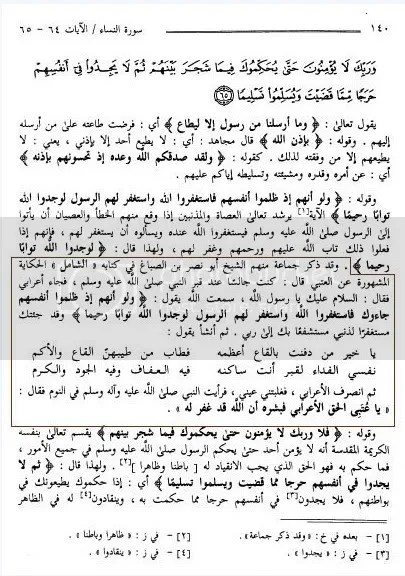 ١٤٠ سورة النساء / الآيات ٦٤ - ٦٥
وَرَبِّكَ لَا يُؤْمِنُونَ حَتَّىٰ يُحَكِّمُوكَ فِيمَا شَجَرَ بَيْنَهُمْ ثُمَّ لَا يَجِدُوا۟ فِىٓ أَنفُسِهِمْ
حَرَجًا مِّمَّا قَضَيْتَ وَيُسَلِّمُوا۟ تَسْلِيمًا ﴿٦٥﴾
يقول تعالى : ﴿ وما أرسلنا من رسول إلا ليطاع ﴾ أي : فرضت طاعته على من أرسله
إليهم . وقوله : ﴿ بإذن الله ﴾ قال مجاهد : أي : لا يطيع أحد إلا بإذني ، يعني : لا
يطيعهم إلا من وفقته لذلك . كقوله : ﴿ ولقد صدقكم اللَّه وعده إذ تحسونهم بإذنه ﴾
أي : عن أمره وقدره ومشيئته وتسليطه إياكم عليهم .
وقوله : ﴿ ولو أنهم إذ ظلموا أنفسهم جاءوك فاستغفروا الله واستغفر لهم الرسول لوجدوا الله
توابًا رحيمًا ﴾ الآية[١] يرشد تعالى العصاة والمذنبين إذا وقع منهم الخطأ والعصيان أن يأتوا
إلى الرسول صلى اللَّه عليه وسلم فيستغفروا اللَّه عنده ويسألوه أن يستغفر لهم ، فإنهم إذا
فعلوا ذلك تاب اللَّه عليهم ورحمهم وغفر لهم ، ولهذا قال : ﴿ لوجدوا اللَّه توابًا
رحيما ﴾ . وقد ذكر جماعة منهم الشيخ أبو نصر بن الصباغ في كتابه « الشامل » الحكاية
المشهورة عن العتبي قال : كنت جالسًا عند قبر النبي صلى اللَّه عليه وسلم ، فجاء أعرابي
فقال : السلام عليك يا رسول اللَّه ، سمعت اللَّه يقول : ﴿ ولو أنهم إذ ظلموا أنفسهم
جاءوك فاستغفروا اللَّه واستغفر لهم الرسول لوجدوا اللَّه توابًا رحيما ﴾ وقد جئتك
مستغفرًا لذنبي مستشفعًا بك إلى ربي . ثم أنشأ يقول :
يا خير من دفنت بالقاع أعظمه فطاب من طيبهنّ القاع والأكم
نفسي الفداء لقبر أنت ساكنه فيه العفاف وفيه الجود والكرم
ثم انصرف الأعرابي ، فغلبتني عيني ، فرأيت النبي صلى اللَّه عليه وآله وسلم في النوم فقال :
« يا عُتْبَى الحق الأعرابي فبشره أن اللَّه قد غفر له » .
وقوله : ﴿ فلا وربك لا يؤمنون حتى يحكموك فيما شجر بينهم ﴾ يقسم تعالى بنفسه
الكريمة المقدسه أنه لا يؤمن أحد حتى يحكم الرسول صلى اللَّه عليه وسلم في جميع الأمور ،
فما حكم به فهو الحق الذي يجب الانقياد له [ باطنا وظاهرا ][٢] . ولهذا قال : ﴿ ثم لا
يجدوا في أنفسهم حرجا مما قضيت ويسلموا تسليمًا ﴾ أي : إذا حكموك يطيعونك في
بواطنهم ، فلا يجدون[٣] في أنفسهم حرجا مما حكمت به ، وينقادون[٤] له في الظاهر
[١] - بعده في خ : « وقد ذكر جماعة » . [٢] - في ز : « ظاهرا وباطنا » .
[٣] - في ز : « يجدوا » . [٤] - في ز : « ينقادوا » .